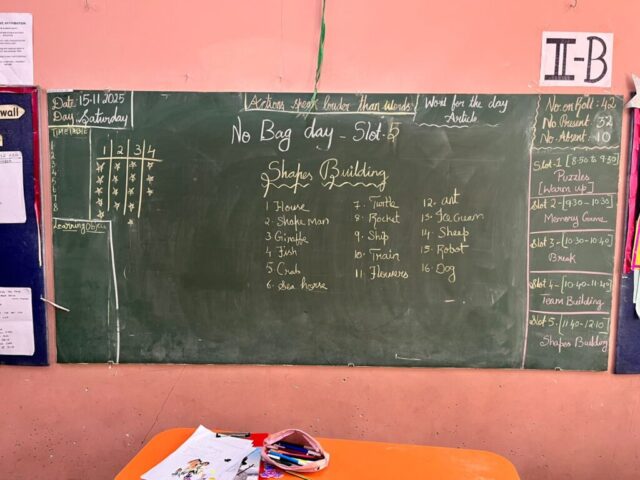 II-B
wall
Date: 15.11.2025
Day Saturday
Actions speak louder than words.
Word for the day
Article
No. on Roll: 42
No. Present: 32
No. Absent: 10
TIME TABLE
1
2
3
4
5
6
7
8
1 2 3 4
No Bag day - Slot-5
Shapes Building
1 House
2. Snake man
3 Giraffe
4 Fish
5 Crab
6. Sea horse
7. Turtle
8. Rocket
9. Ship
10. Train
11. Flowers
12. ant
13. Ice Cream
14. Sheep
15. Robot
16. Dog
Learning Obj:
Slot-1 [8:50 to 9:30]
Puzzles
[Warm up]
Slot 2-[9:30 - 10:30]
Memory Game
Slot 3-[10:30-10:40]
Break
Slot 4-[10:40-11:40]
Team Building
Slot 5-[11:40-12:10]
Shapes Building